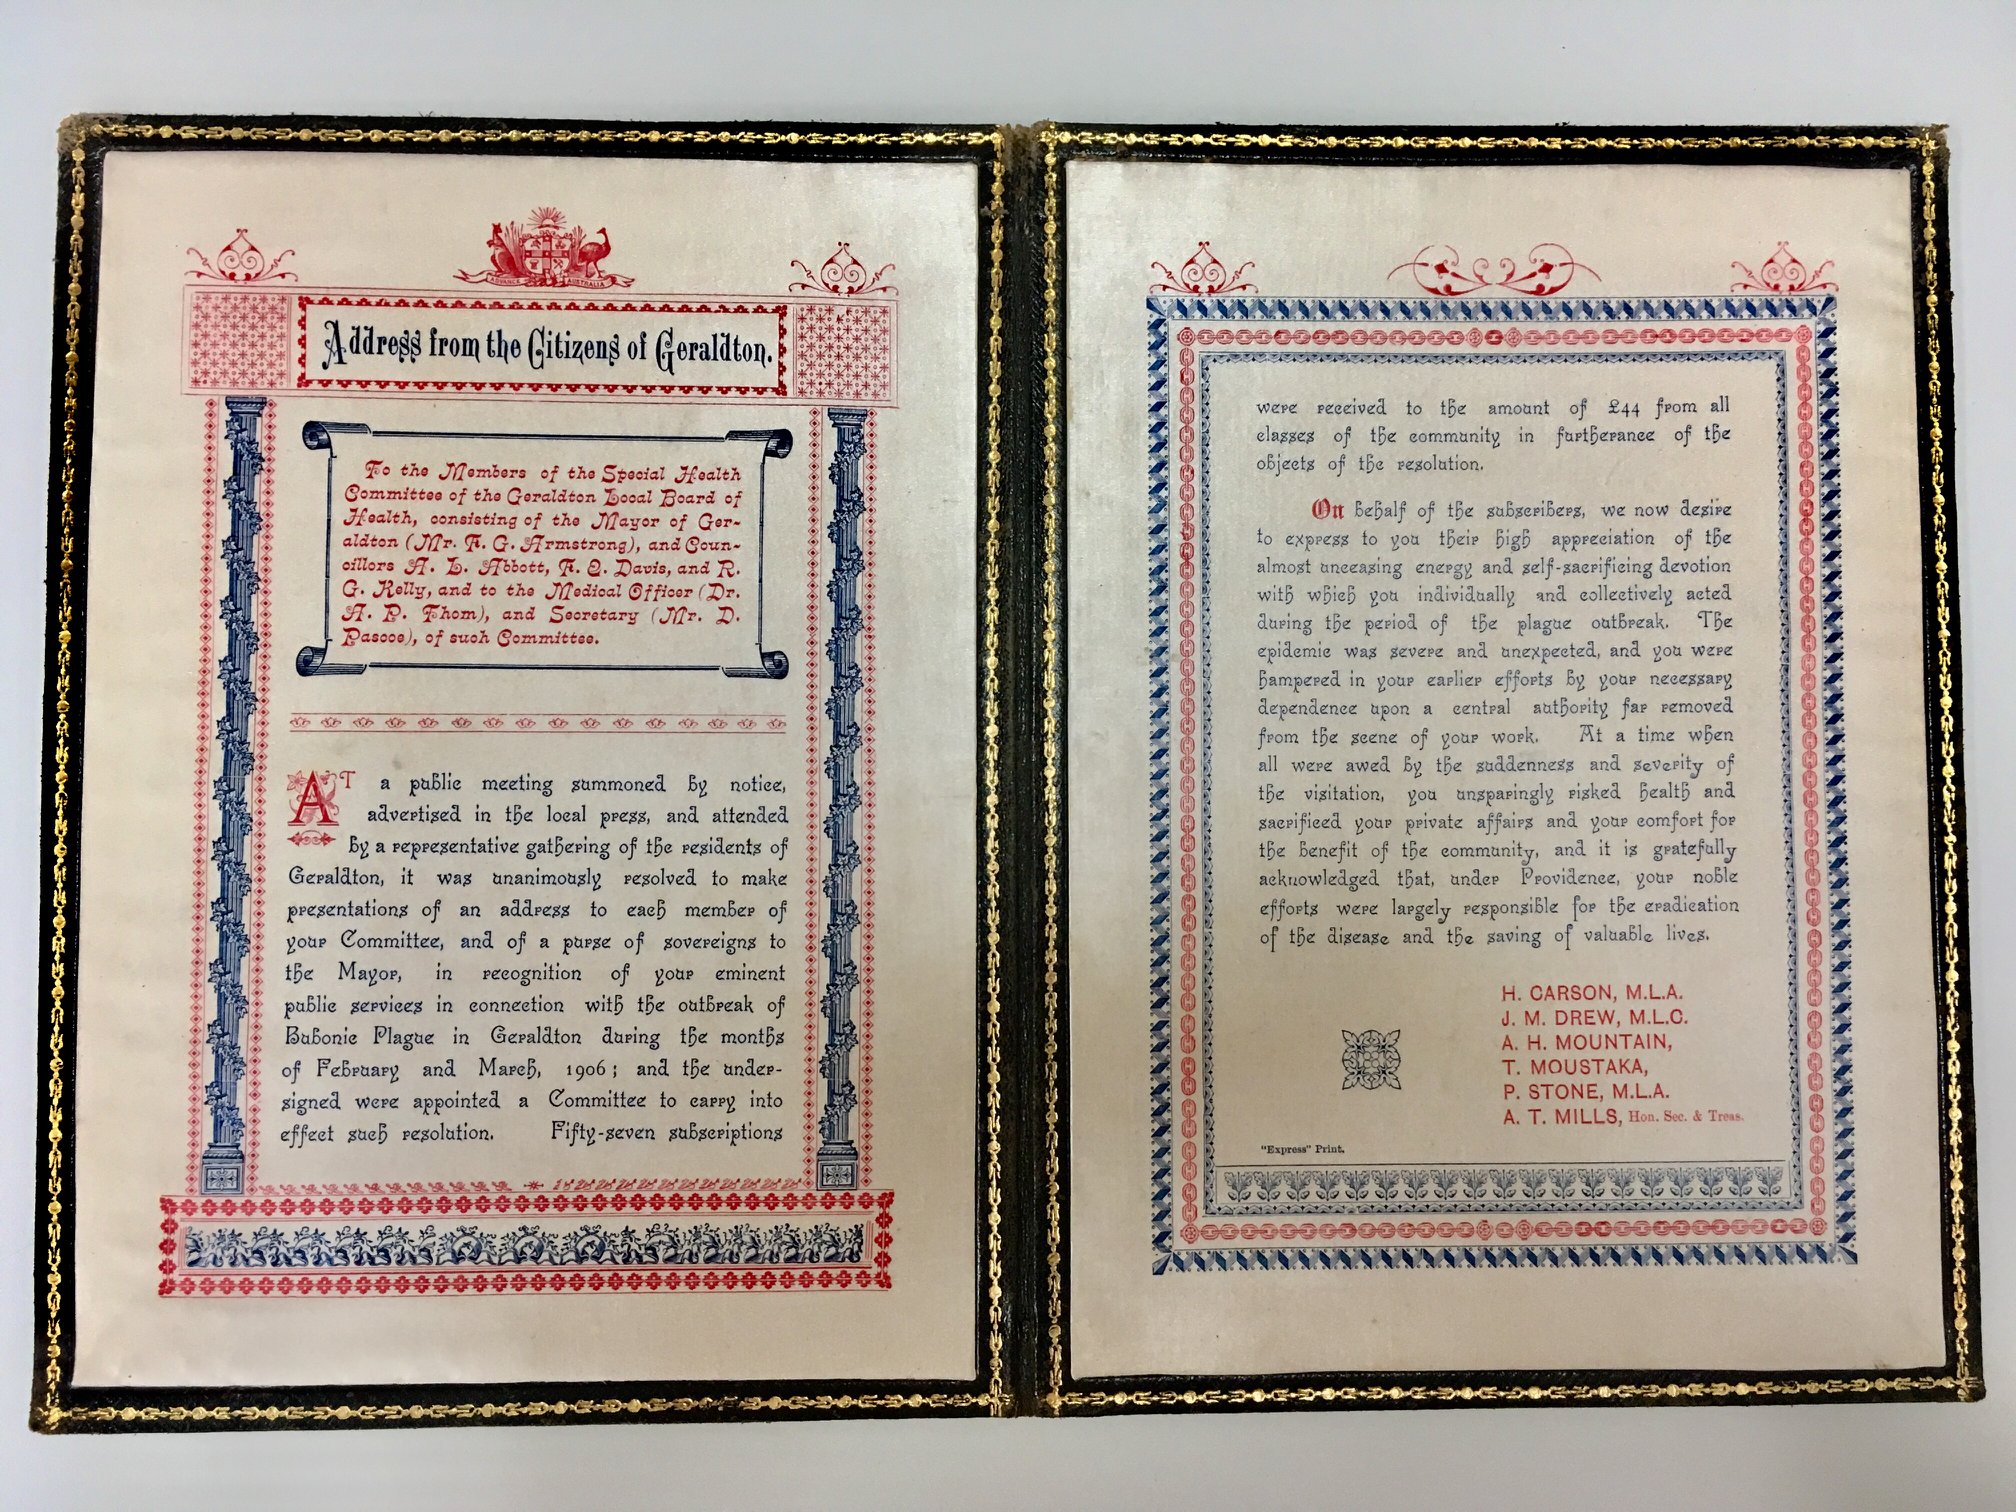 ADVANCE AUSTRALIA
Address from the Citizens of Geraldton.
To the Members of the Special Health
Committee of the Geraldton Local Board of
Health, consisting of the Mayor of Ger-
aldton (Mr. F. G. Armstrong), and Coun-
cillors A. L. Abbott, F. Q. Davis, and R.
G. Kelly, and to the Medical Officer (Dr.
A. P. Thom), and Secretary (Mr. D.
Pascoe), of such Committee.
AT a public meeting summoned by notice,
advertised in the local press, and attended
by a representative gathering of the residents of
Geraldton, it was unanimously resolved to make
presentations of an address to each member of
your Committee, and of a purse of sovereigns to
the Mayor, in recognition of your eminent
public services in connection with the outbreak of
Bubonic Plague in Geraldton during the months
of February and March, 1906; and the under-
signed were appointed a Committee to carry into
effect such resolution. Fifty-seven subscriptions
were received to the amount of £44 from all
classes of the community in furtherance of the
objects of the resolution.
On behalf of the subscribers, we now desire
to express to you their high appreciation of the
almost unceasing energy and self-sacrificing devotion
with which you individually and collectively acted
during the period of the plague outbreak. The
epidemic was severe and unexpected, and you were
hampered in your earlier efforts by your necessary
dependence upon a central authority far removed
from the scene of your work. At a time when
all were awed by the suddenness and severity of
the visitation, you unsparingly risked health and
sacrificed your private affairs and your comfort for
the benefit of the community, and it is gratefully
acknowledged that, under Providence, your noble
efforts were largely responsible for the eradication
of the disease and the saving of valuable lives.
H. CARSON, M.L.A.
J. M. DREW, M.L.C.
A. H. MOUNTAIN,
T. MOUSTAKA,
P. STONE, M.L.A.
A. T. MILLS, Hon. Sec. & Treas.
"Express" Print.